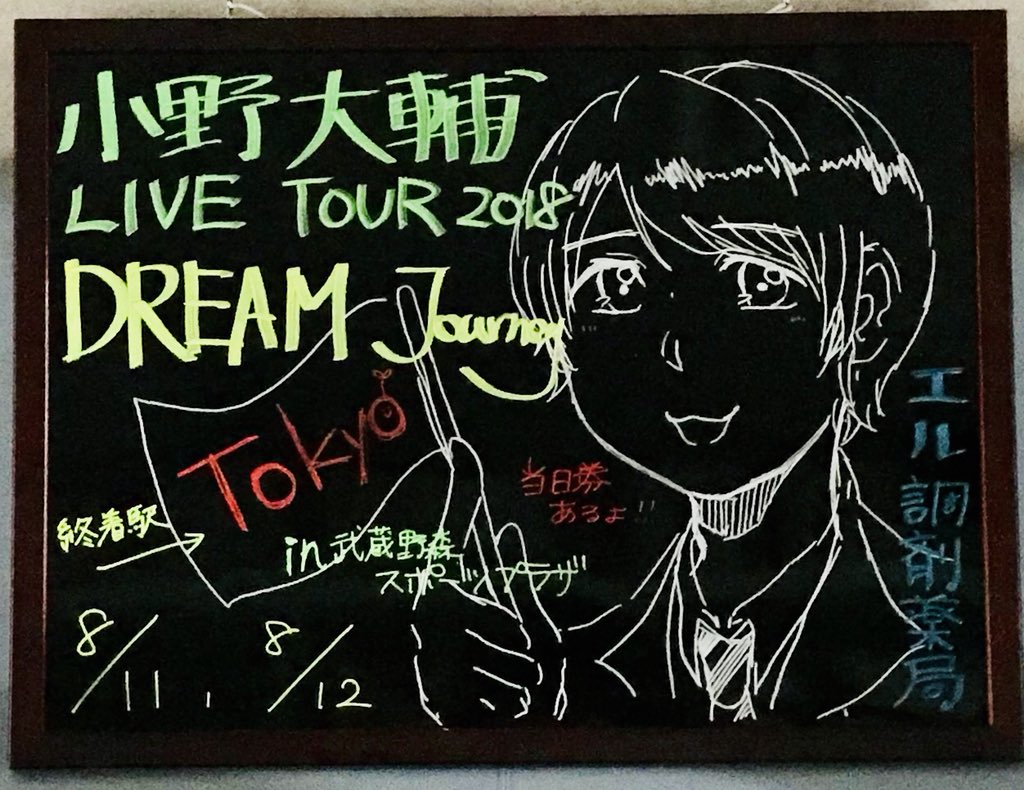 小野大輔
LIVE TOUR 2018
DREAM Journey
Tokyo
終着駅
in 武蔵野森
スポーツプラザ
当日券
あるよ!!
8/11, 8/12
エル調剤薬局